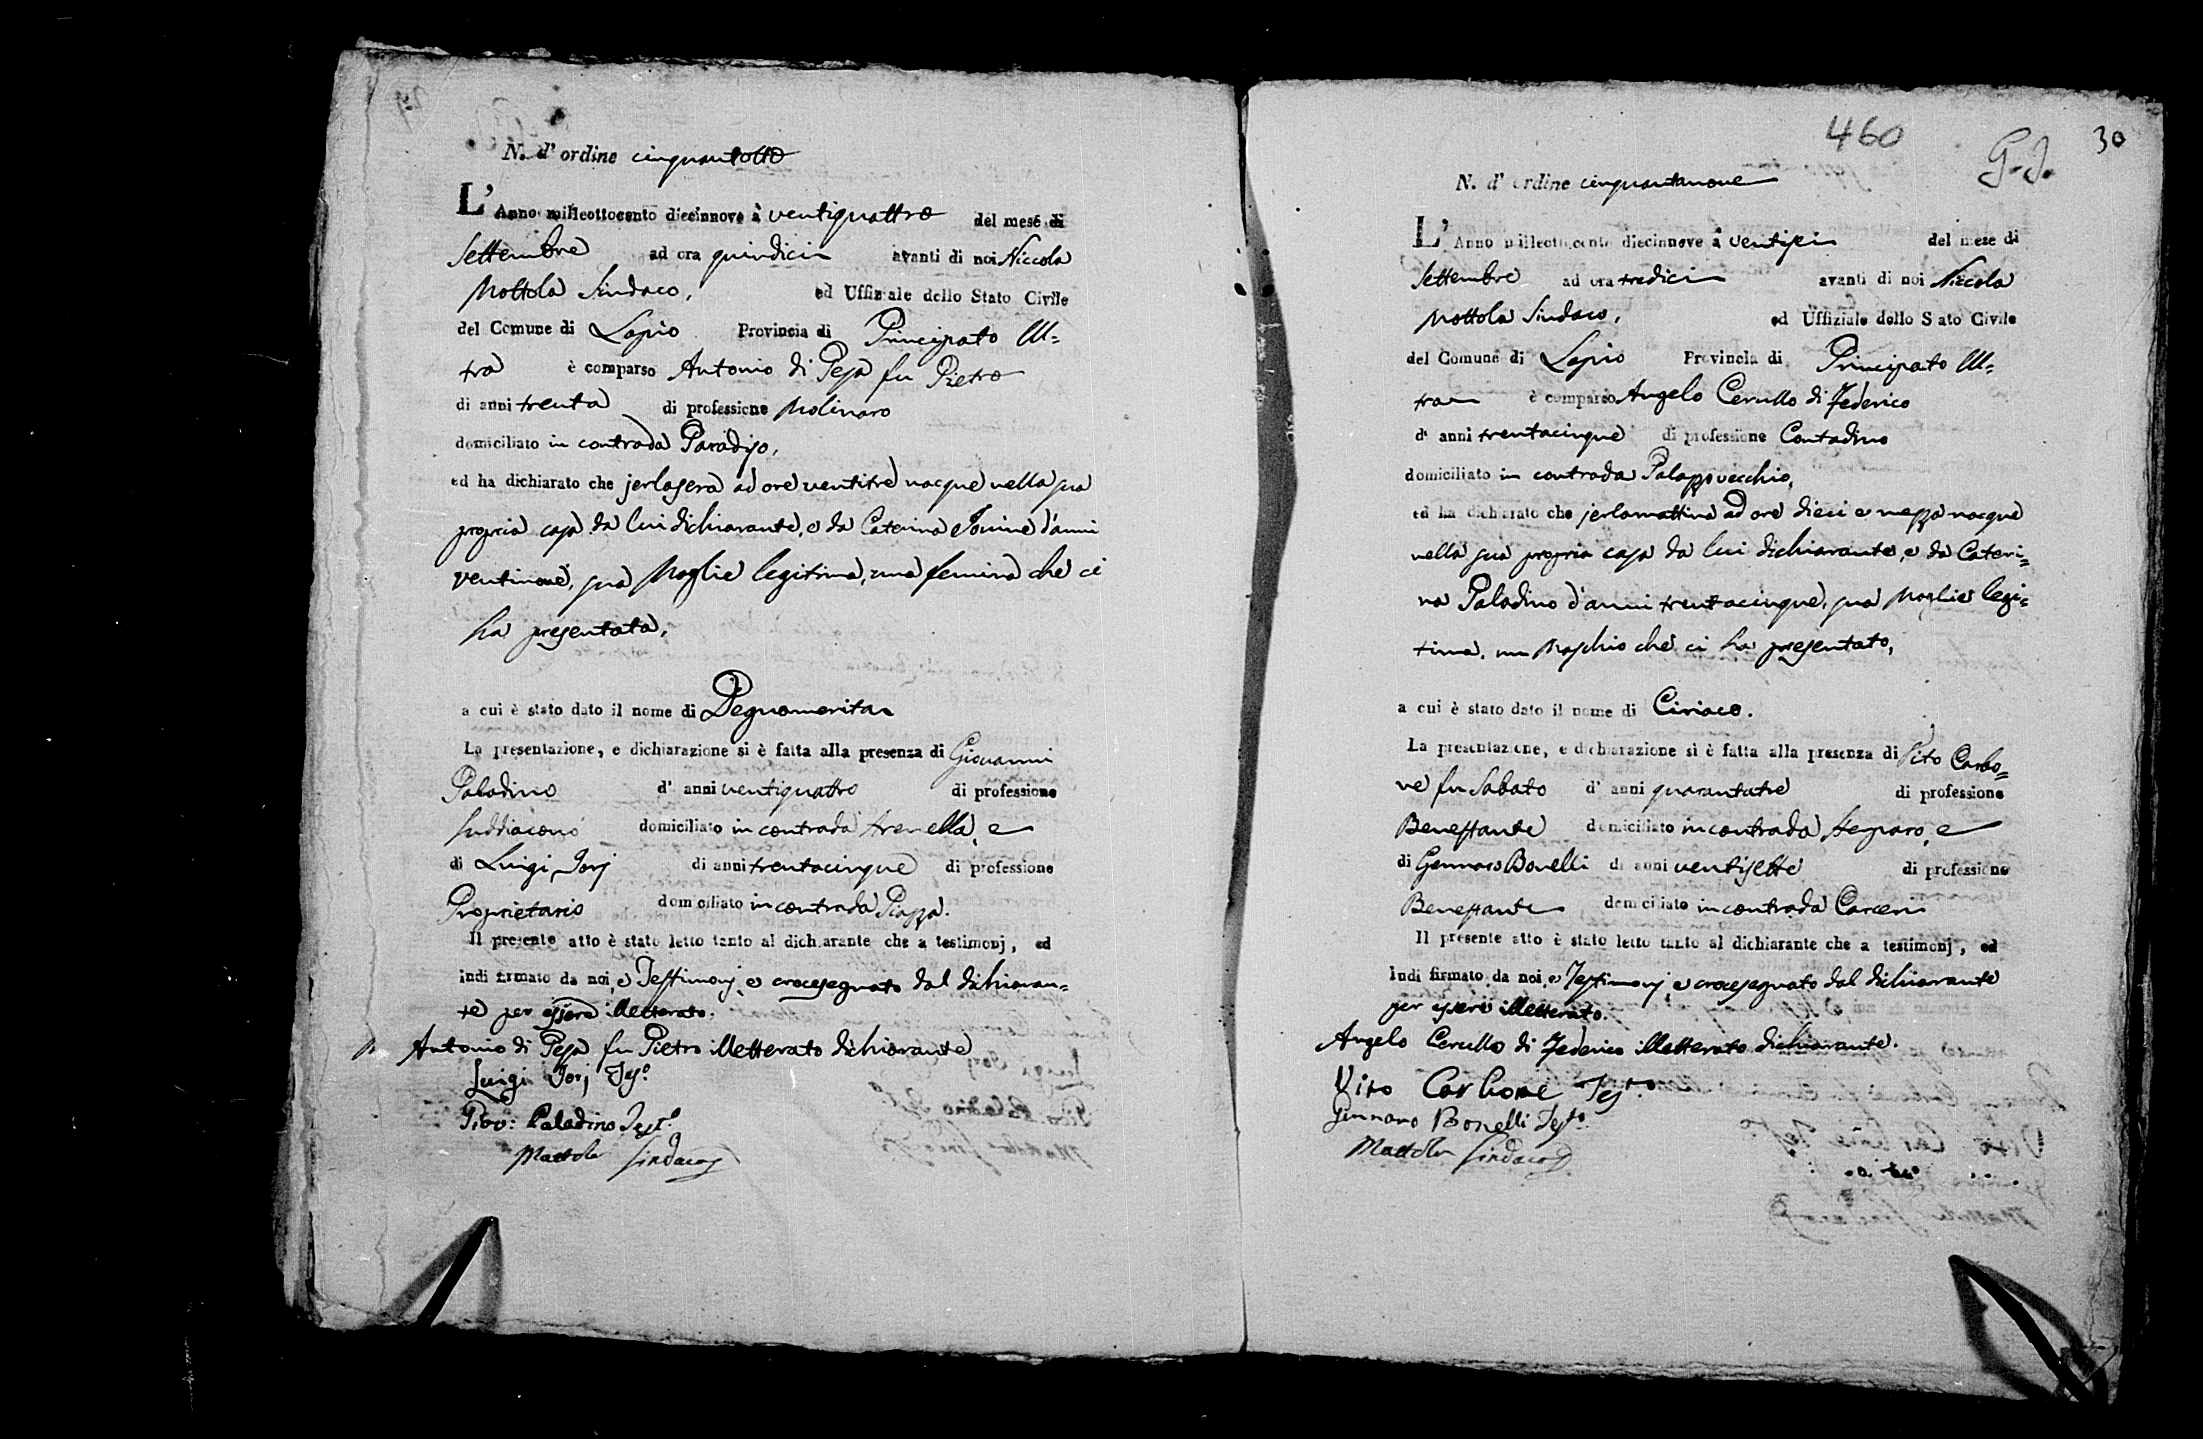 N. d' ordine cinquantotto
L' Anno milleottocento diecinnove à ventiquattro del mese di
Settembre ad ora quindici avanti di noi Niccola
Mottola Sindaco, ed Uffiziale dello Stato Civile
del Comune di Lapio Provincia di Principato Ul=
tra è comparso Antonio di Pesa fu Pietro
di anni trenta di professione Molinaro
domiciliato in contrada Paradiso,
ed ha dichiarato che jerlasera ad ore ventitre nacque nella sua
propria casa da lui dichiarante, e da Caterina Jonine d'anni
ventinove, sua Moglie legitima, una femina che ci
ha presentata,
a cui è stato dato il nome di Degnamerita
La presentazione, e dichiarazione si è fatta alla presenza di Giovanni
Paladino d' anni ventiquattro di professione
Suddiacono domiciliato in contrada e
di Luigi Jorj di anni trentacinque di professione
Proprietario domiciliato in contrada Piazza.
Il presente atto è stato letto tanto al dichiarante che a testimonj, ed
indi firmato da noi, e Testimonj, e crocesegnato dal dichiaran=
te per essere illetterato.
Antonio di Pesa fu Pietro illetterato dichiarante
Luigi Jorj Tes.º
Giov: Paladino Test.º
Mottola Sindaco
460
G. J.
30
N. d' ordine cinquantanove
L' Anno milleottocento diecinnove à ventisei del mese di
Settembre ad ora tredici avanti di noi Niccola
Mottola Sindaco, ed Uffiziale dello Stato Civile
del Comune di Lapio Provincia di Principato Ul=
tra è comparso Angelo Cerullo di Federico
d' anni trentacinque di professione Contadino
domiciliato in contrada Palazzovecchio,
ed ha dichiarato che jerlamattina ad ore dieci e mezza nacque
nella sua propria casa da lui dichiarante, e da Cateri=
na Paladino d'anni trentacinque, sua Moglie legi=
tima, un Maschio che ci ha presentato,
a cui è stato dato il nome di Ciriaco.
La presentazione, e dichiarazione si è fatta alla presenza di Vito Carbo=
ne fu Sabato d' anni quarantatre di professione
Benestante domiciliato in contrada e
di Gennaro Bonelli di anni ventisette di professione
Benestante domiciliato in contrada Carceri
Il presente atto è stato letto tanto al dichiarante che a testimonj, ed
indi firmato da noi, e Testimonj, e crocesegnato dal dichiarante
per essere illetterato.
Angelo Cerullo di Federico illetterato dichiarante.
Vito Carbone Tes.º
Gennaro Bonelli Tes.º
Mottola Sindaco